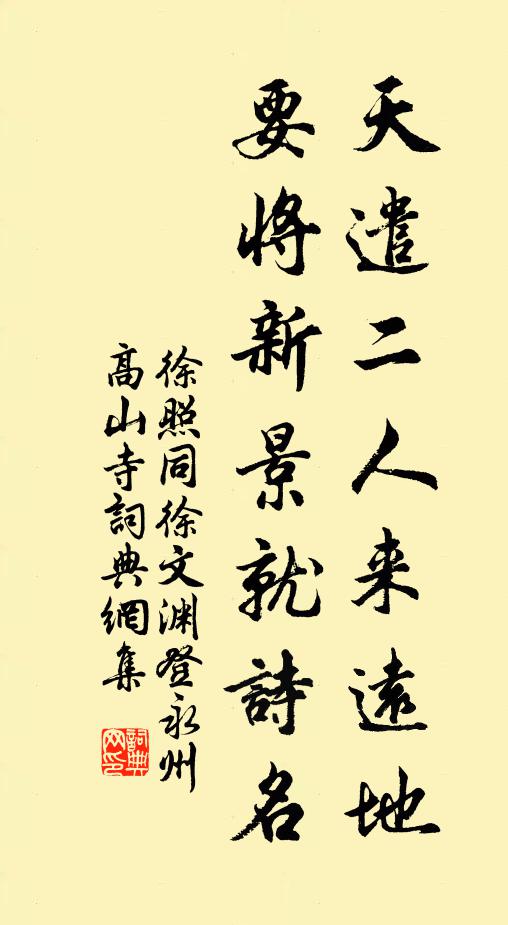 天遣二人来遠地
要將新景就詩名
徐照同徐文渊登永州
高山寺詞典網集
詞典
网印